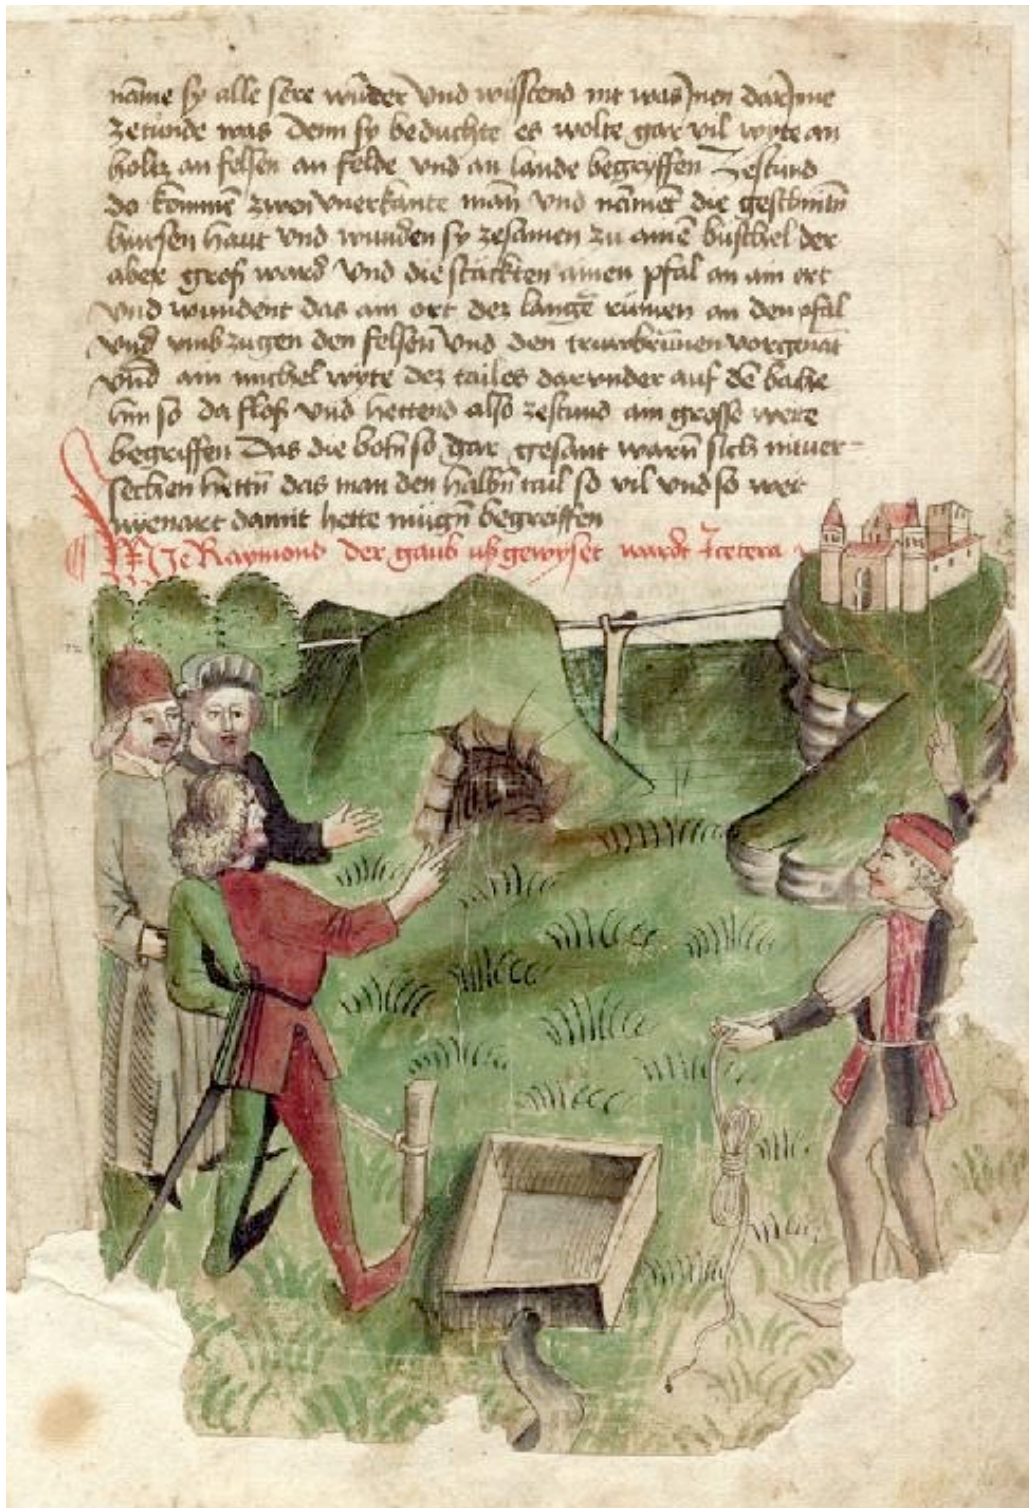 name sy alle sere wunder vnd wisstend nit was Inen darInne
zetunde was Denn sy beduchte es wolte gar vil wyte an
holtz an felsen an felde vnd an lande begryffen Zestund
do komment zwen vnerkante man vnd namet die
hirsen haut vnd wunden sy zesamen zu ainē büschel der
aber groß ward Vnd die stackten ainen pfal an ain ort
vnd wundent das ain ort dez langē riimen an den pfal
vnd vmbzugen den felsen vnd den vorgenāt
vnd ain michel wyte dez tailes darunder auf dē bache
hin so da floß vnd hettend also zestund ain grosse were
begriffen Das die so dar gesant warn sich niuer-
sechen hettn das man den halbn tail so vil vnd so wer
damit hette mügn begreiffen
Wie Raymond der gaub vß gewyset ward Et cetera